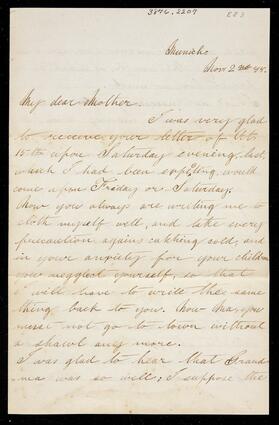 3846.2207
E83
Munich
Nov 2nd 44.
My dear Mother.
I was very glad
to receive your letter of Oct
15th upon Saturday evening last,
which I had been expecting would
come upon Friday or Saturday.
Now you always are writing me to
cloth myself well, and take every
precaution agains catching cold, and
in your anxiety for your children
you negglect yourself, so that
I will have to write the same
thing back to you. Now Ma, you
must not go to town without
a shawl any more.
I was glad to hear that Grand
ma was so well; I suppose the